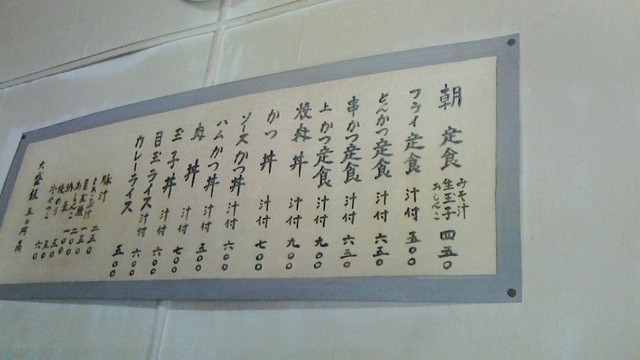 朝定食 みそ汁 生玉子 おしんこ 四五〇
フライ定食 汁付 五〇〇
とんかつ定食 汁付 六五〇
串かつ定食 汁付 六五〇
上かつ定食 汁付 九〇〇
焼肉丼 汁付 九〇〇
かつ丼 汁付 七〇〇
ソースかつ丼 汁付 六〇〇
ハムかつ丼 汁付 五〇〇
丼 汁付
玉子丼 汁付 七〇〇
目玉ライス 汁付 六〇〇
カレーライス 五〇〇
豚汁 二五〇
目玉焼
おしんこ 一〇〇
冷やっこ
大盛飯 五〇円高